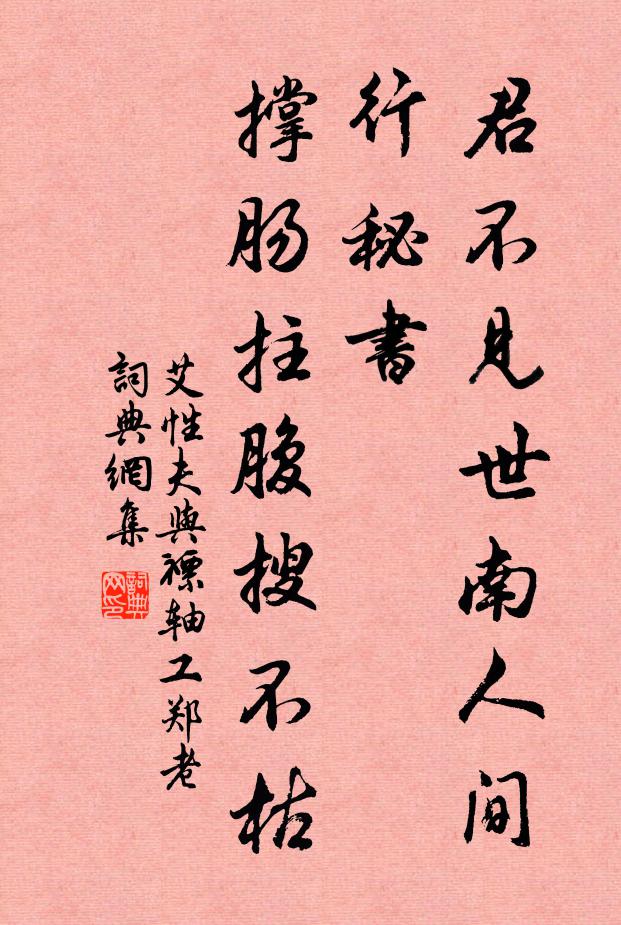 君不见世南人间
行秘書
撑肠拄腹搜不枯
艾性夫與褾轴工郑老
詞典網集
詞典网印